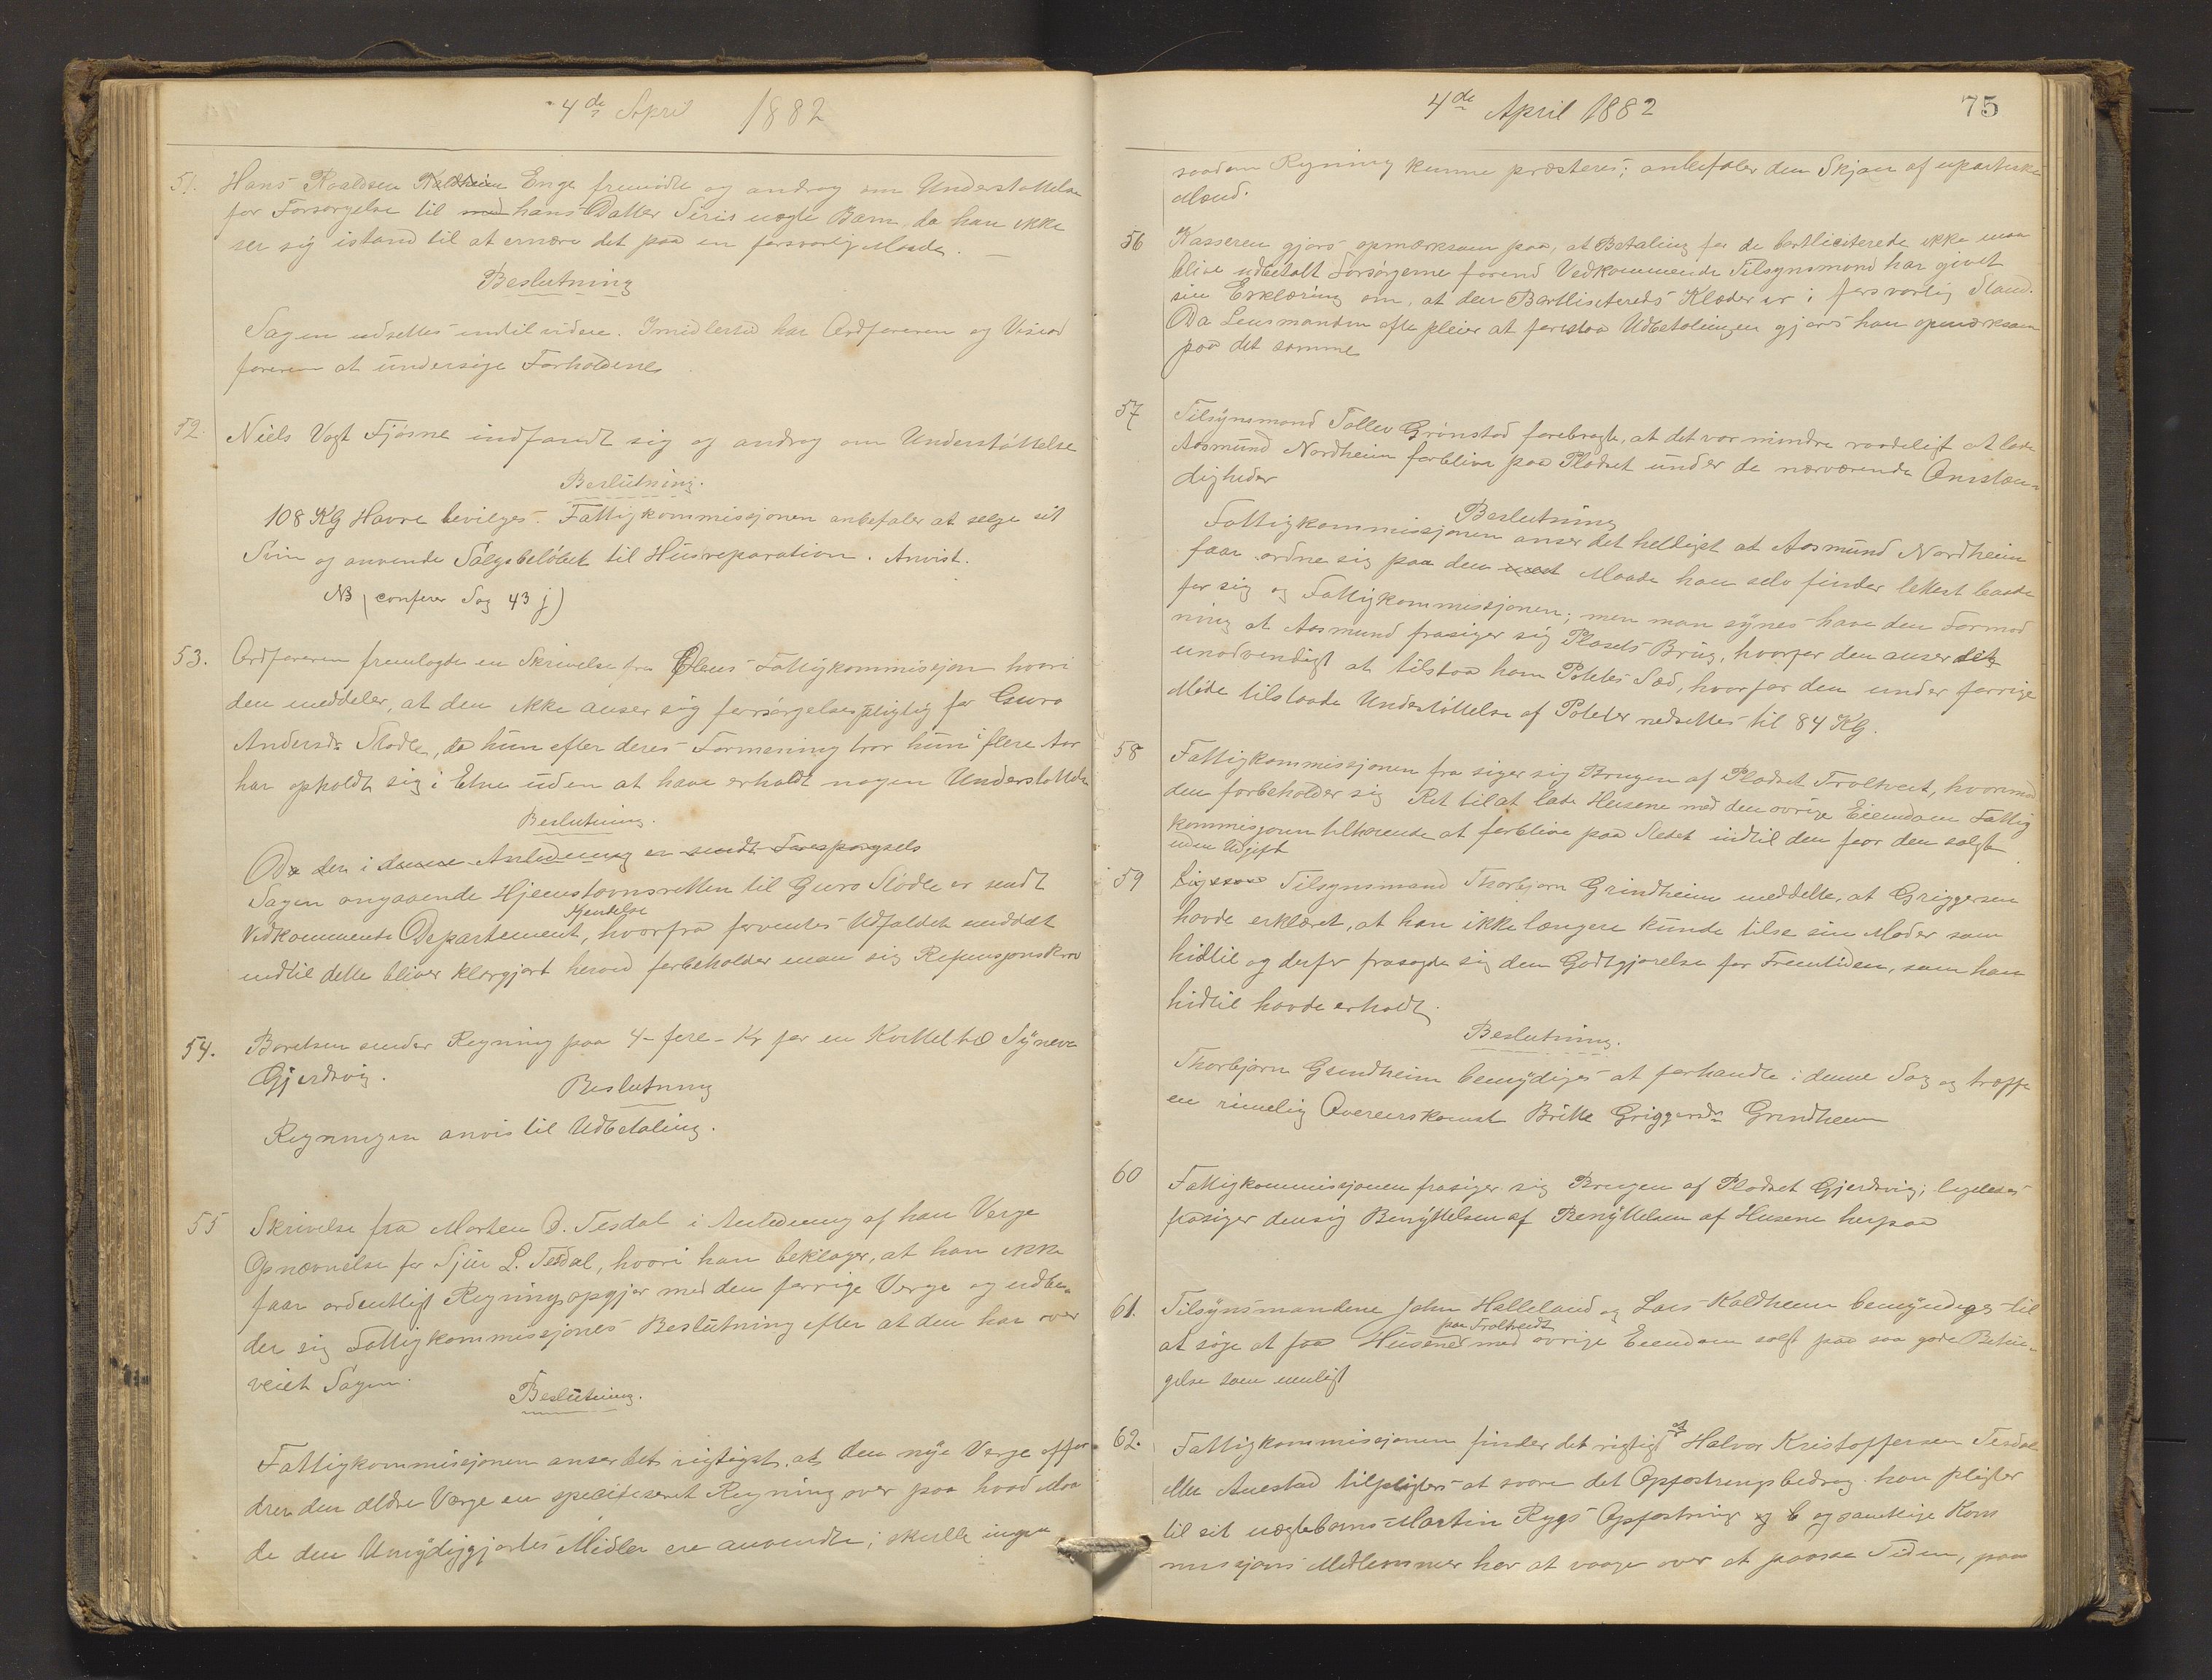 4de April 1882
51. Hans Roaldsen Kaldheim Enge fremmødte og androg om Understøttelse
for Forsørgelse til med hans Datter Siris uægte Barn, da han ikke
ser sig istand til at ernære det paa en forsvarlig Maade. —
Beslutning
Sagen udsettes indtil videre. Imidlertid har Ordføreren og Viseord
føreren at undersøge Forholdene
52. Niels Vogt Fjøsne indfandt sig og androg om Understøttelse
Beslutning.
108 KG Havre bevilges. Fattigkommissjonen anbefaler at selge sit
Svin og anvende Salgsbeløbet til Husreparation. Anvist.
NB (confere Sag 43 j)
53. Ordføreren fremlagde en Skrivelse fra Ølens Fattigkommissjon hvori
den meddeler, at den ikke anser sig forsørgelsespligtig for Guro
Andersdr Stødle, da hun efter deres Formening tror hun i flere Aar
har opholdt sig i Etne uden at have erholdt nogen Understøttelse
Beslutning.
Da den i denne Anledning er sendt Forespørgsels
Sagen angaaende Hjemstavnsretten til Guro Stødle er sendt
Vedkommende Departement, hvorfra forventes Kjendelse Udfaldet meddelt
indtil dette bliver klargjort herved forbeholder man sig Refusjonskrav
54. Berelsen sender Regning paa 4 - fire - Kr for en Kortkel til Synneva
Gjerdvig.
Beslutning
Regningen anvis til Udbetaling.
55 Skrivelse fra Morten O. Tesdal i Anledning af han Verge
Opnævnelse for Sjur L. Tesdal, hvori han beklager, at han ikke
faar ordentligt Regningsopgjør med den forrige Verge og udbe-
der sig Fattigkommissjones Beslutning efter at den har over
veiet Sagen.
Beslutning.
Fattigkommissjonen anser det rigtigst, at den nye Verge affor
drer den ældre Verge en specificeret Regning over paa hvad Maa
de den Umyndiggjortes Midler ere anvendte; skulle ingen
4de April 1882
75
saadan Regning kunne præsteres; anbefaler den Skjøn af upartiske
Mænd.
56 Kasseren gjøres opmærksom paa, at Betaling for de bortliciterede ikke maa
blive udbetalt Forsørgerne førend Vedkommende Tilsynsmand har givet
sin Erklæring om, at den Bortliciteredes Klæder er i forsvarlig Stand.
Da Lensmanden ofte pleier at forestaa Udbetalingen gjøres han opmærksom
paa det samme
57 Tilsynsmand Tollev Grønstad forebragte, at det var mindre raadeligt at lade
Aasmund Nordheim forblive paa Pladset under de nærværende Omstæn-
digheder
Beslutning
Fattigkommissjonen anser det heldigst at Aasmund Nordheim
faar ordne sig paa den Maade han selv finder lettest baade
for sig og Fattigkommissjonen; men man synes have den Formod
ning at Aasmund frasiger sig Plasets Brug, hvorfor den anser det
unødvendigt at tilstaa ham Potetes Sæd, hvorfor den under forrige
Møde tilstaade Understøttelse af Poteter nedsettes til 84 KG.
58 Fattigkommissjonen fra siger sig Brugen af Pladset Troltveit, hvormed
den forbeholder sig Ret til at lade Husene med den øvrige Eiendom Fattig
kommisjonen tilhørende at forblive paa Stedet indtil den faar den solgt
uden Udgift
59 Ligesaa Tilsynsmand Thorbjørn Grindheim meddelte, at Griggersen
havde erklæret, at han ikke længere kunde tilse sin Moder som
hidtil og derfor frasagde sig den Godtgjørelse for Fremtiden, som han
hidtil havde erholdt.
Beslutning.
Thorbjørn Grindheim bemyndiges at forhandle i denne Sag og træffe
en rimelig Overenskomst Britte Griggersdr Grindheim
60 Fattigkommissjonen frasiger sig Brugen af Pladset Gjerdvig; ligeledes
frasiger den sig Benyttelsen af Benyttelsen af Husene herpaa
61. Tilsynsmandene John Helleland og Lars Kaldheim bemyndiges til
at søge at faa Husene paa Troltveidt med øvrige Eiendom solgt paa saa gode Betin-
gelse som muligt
62. Fattigkommissjonen finder det rigtigt at Halvor Kristoffersen Tesdal
eller Anestad tilpligtes at svare det Opfostringsbedrag han pligter
til sit uægtebarns Martin Rygs Opfostring og samtlige Kom
missjons Medlemmer har at vaage over at passe Tiden, paa